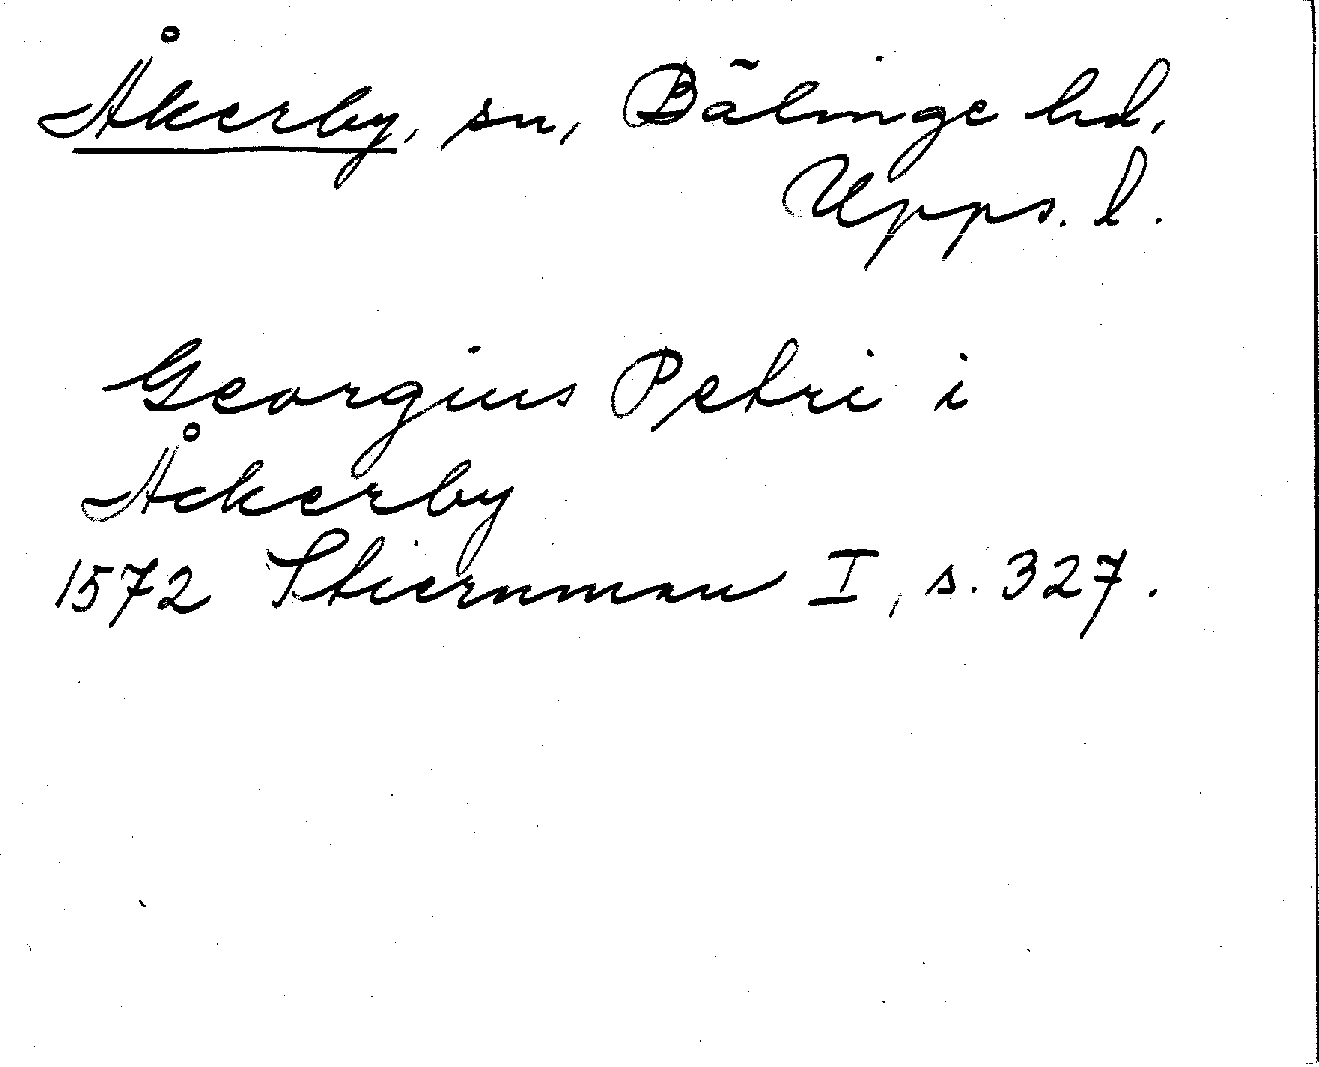 Åkerby, sn, Bälinge hd,
Upps. l.
Georgius Petri i
Åckerby
1572 Stiernman I, s. 327.